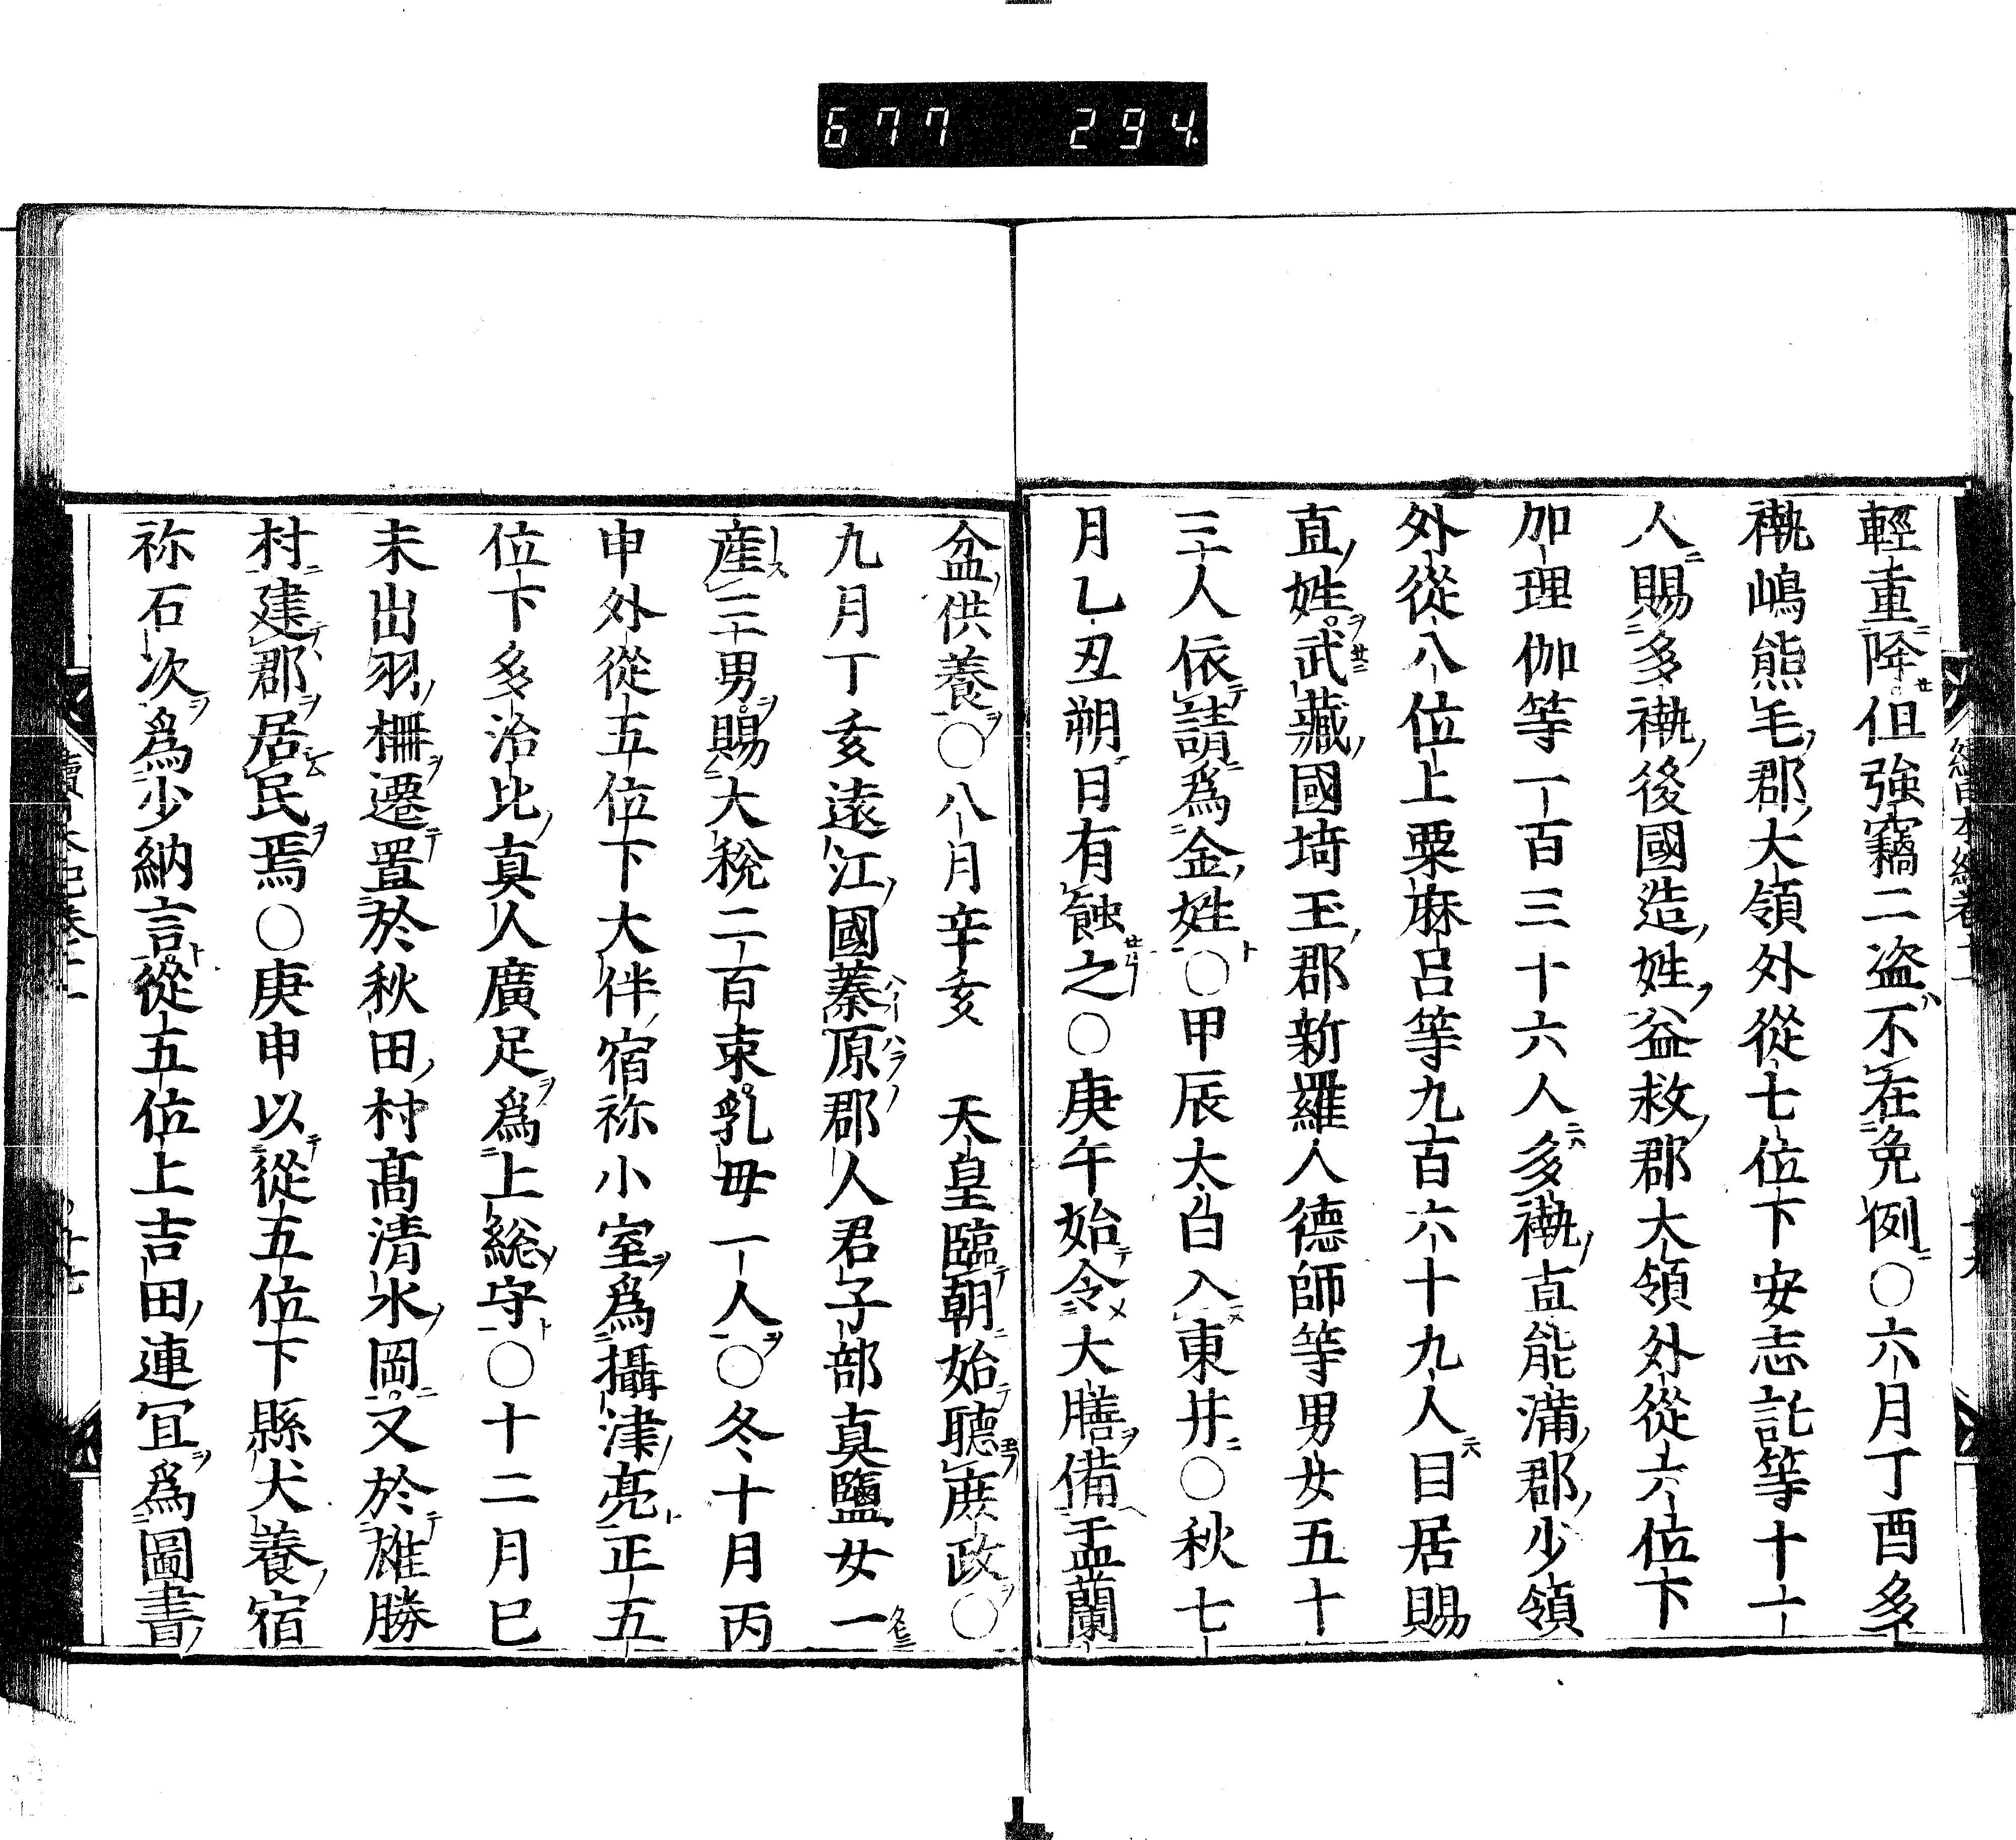 677 294
輕重降但強竊二盗不在免例〇六月丁酉多
褹嶋熊毛郡大領外從七位下安志託等十一
人賜多褹後國造姓益救郡大領外從六位下
加理伽等一百三十六人多褹直能満郡少領
外從八位上粟麻呂等九百六十九人目居賜
直姓武藏國埼玉郡新羅人德師等男女五十
三十人依請爲金姓〇甲辰太白入東井〇秋七
月乙丑朔日有蝕之〇庚午始令大膳備盂蘭
盆供養〇八月辛亥 天皇臨朝始聽庶政〇
九月丁亥遠江國蓁原郡人君子部真鹽女一
産三男賜大稅二百束乳毋一人〇冬十月丙
申外從五位下大伴宿祢小室爲攝津亮正五
位下多治比真人廣足爲上総守〇十二月巳
未出羽柵遷置於秋田村髙清水岡又於雄勝
村建郡居民焉〇庚申以從五位下縣犬養宿
祢石次爲少納言從五位上吉田連宜爲圖書